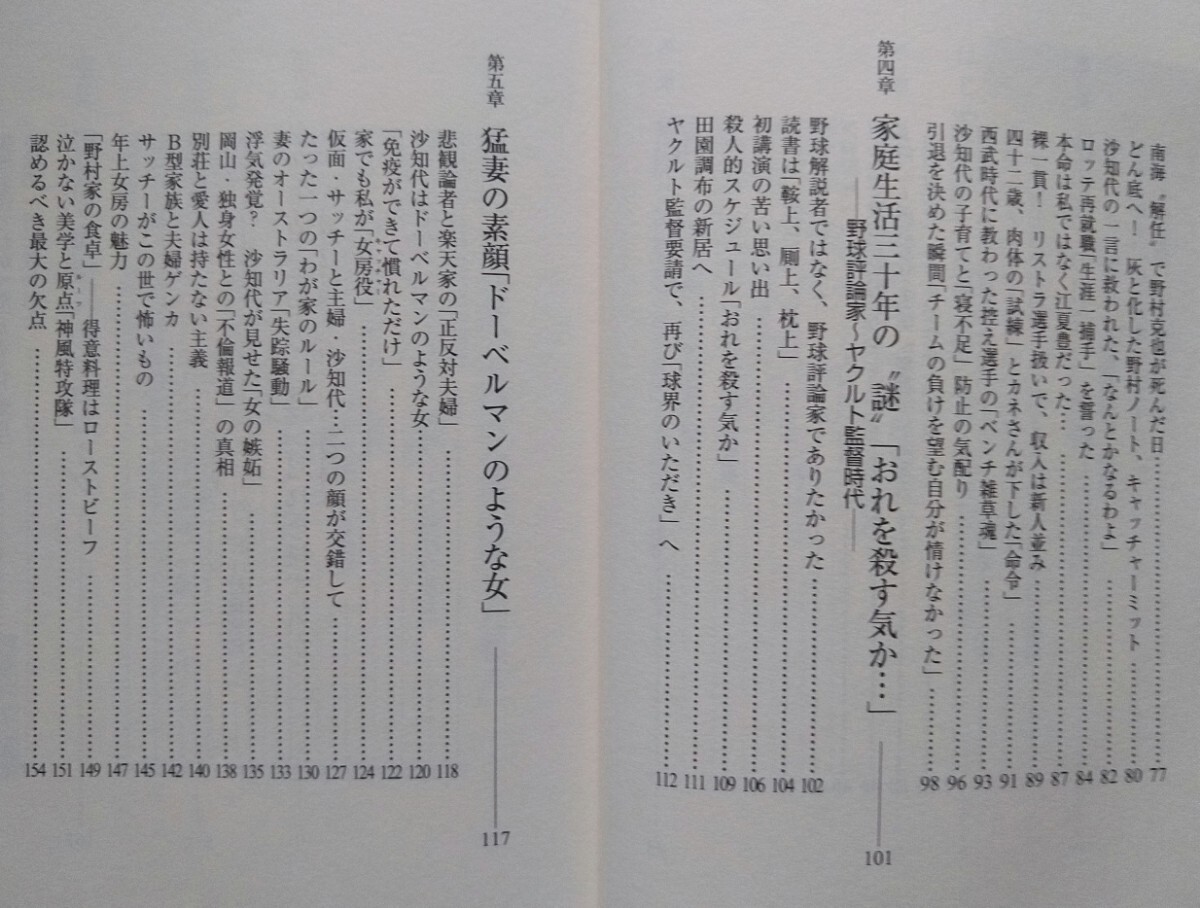 南海〝解任〟で野村克也が死んだ日……77
どん底へ！　灰と化した野村ノート、キャッチャーミット……80
沙知代の一言に救われた、「なんとかなるわよ」……82
ロッテ再就職「生涯一捕手」を誓った……84
本命は私ではなく江夏豊だった……87
裸一貫！　リストラ選手扱いで、収入は新人並み……89
四十二歳、肉体の「試練」とカネさんが下した「命令」……91
西武時代に教わった控え選手の「ベンチ雑草魂」……93
沙知代の子育てと「寝不足」防止の気配り……96
引退を決めた瞬間「チームの負けを望む自分が情けなかった」……98
第四章　家庭生活三十年の〝謎〟「おれを殺す気か…」――101
――野球評論家〜ヤクルト監督時代――
野球解説者ではなく、野球評論家でありたかった……102
読書は「鞍上、厠上、枕上」……104
初講演の苦い思い出……106
殺人的スケジュール「おれを殺す気か」……109
田園調布の新居へ……111
ヤクルト監督要請で、再び「球界のいただき」へ……112
第五章　猛妻の素顔「ドーベルマンのような女」――117
悲観論者と楽天家の「正反対夫婦」……118
沙知代はドーベルマンのような女……120
「免疫ができて慣れただけ」……122
家でも私が「女房役」……124
仮面・サッチーと主婦・沙知代・二つの顔が交錯して……127
たった一つの「わが家のルール」……130
妻のオーストラリア「失踪騒動」……133
浮気発覚？　沙知代が見せた「女の嫉妬」……135
岡山・独身女性との「不倫報道」の真相……138
別荘と愛人は持たない主義……140
Ｂ型家族と夫婦ゲンカ……142
サッチーがこの世で怖いもの……145
年上女房の魅力……147
「野村家の食卓」――得意料理はローストビーフ……149
泣かない美学と原点「神風特攻隊」……151
認めるべき最大の欠点……154